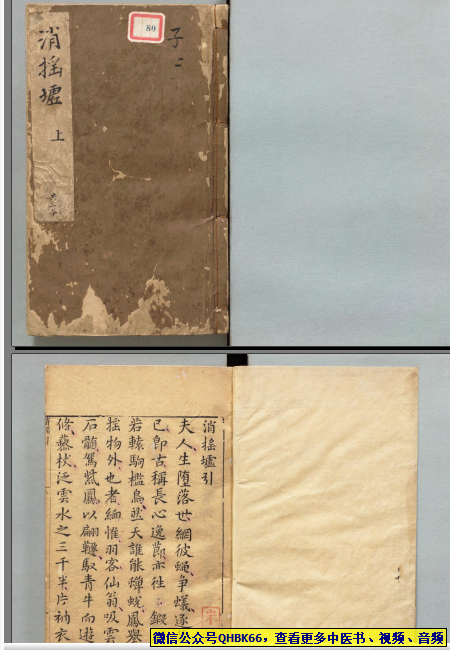 80
子
消搖墟
上
消搖墟引
夫人生墮落世網彼蠅爭蟻逐
已卽古稱長心逸節亦往鍛
若轅駒檻鳥天誰能蟬蛻鳳舉
搖物外也者緬惟羽客仙翁吸雲
石髓駕紫鳳以翩馭青牛向遊
條藜杖泛雲水之三千半片衲衣
微信公众号QHBK66，查看更多中医书、视频、音频